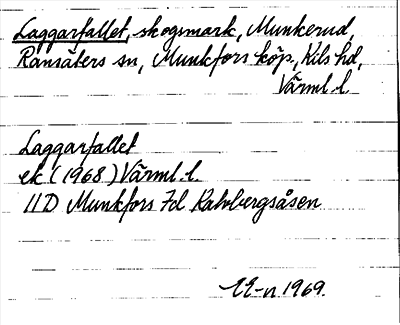 Laggarfallet, skogsmark, Munkerud,
Ransäters sn, Munkfors köp., Kils hd,
Värml. l.
Laggarfallet
ek (1968) Värml. l.
11D Munkfors 7d Kalvbergsåsen
1969.